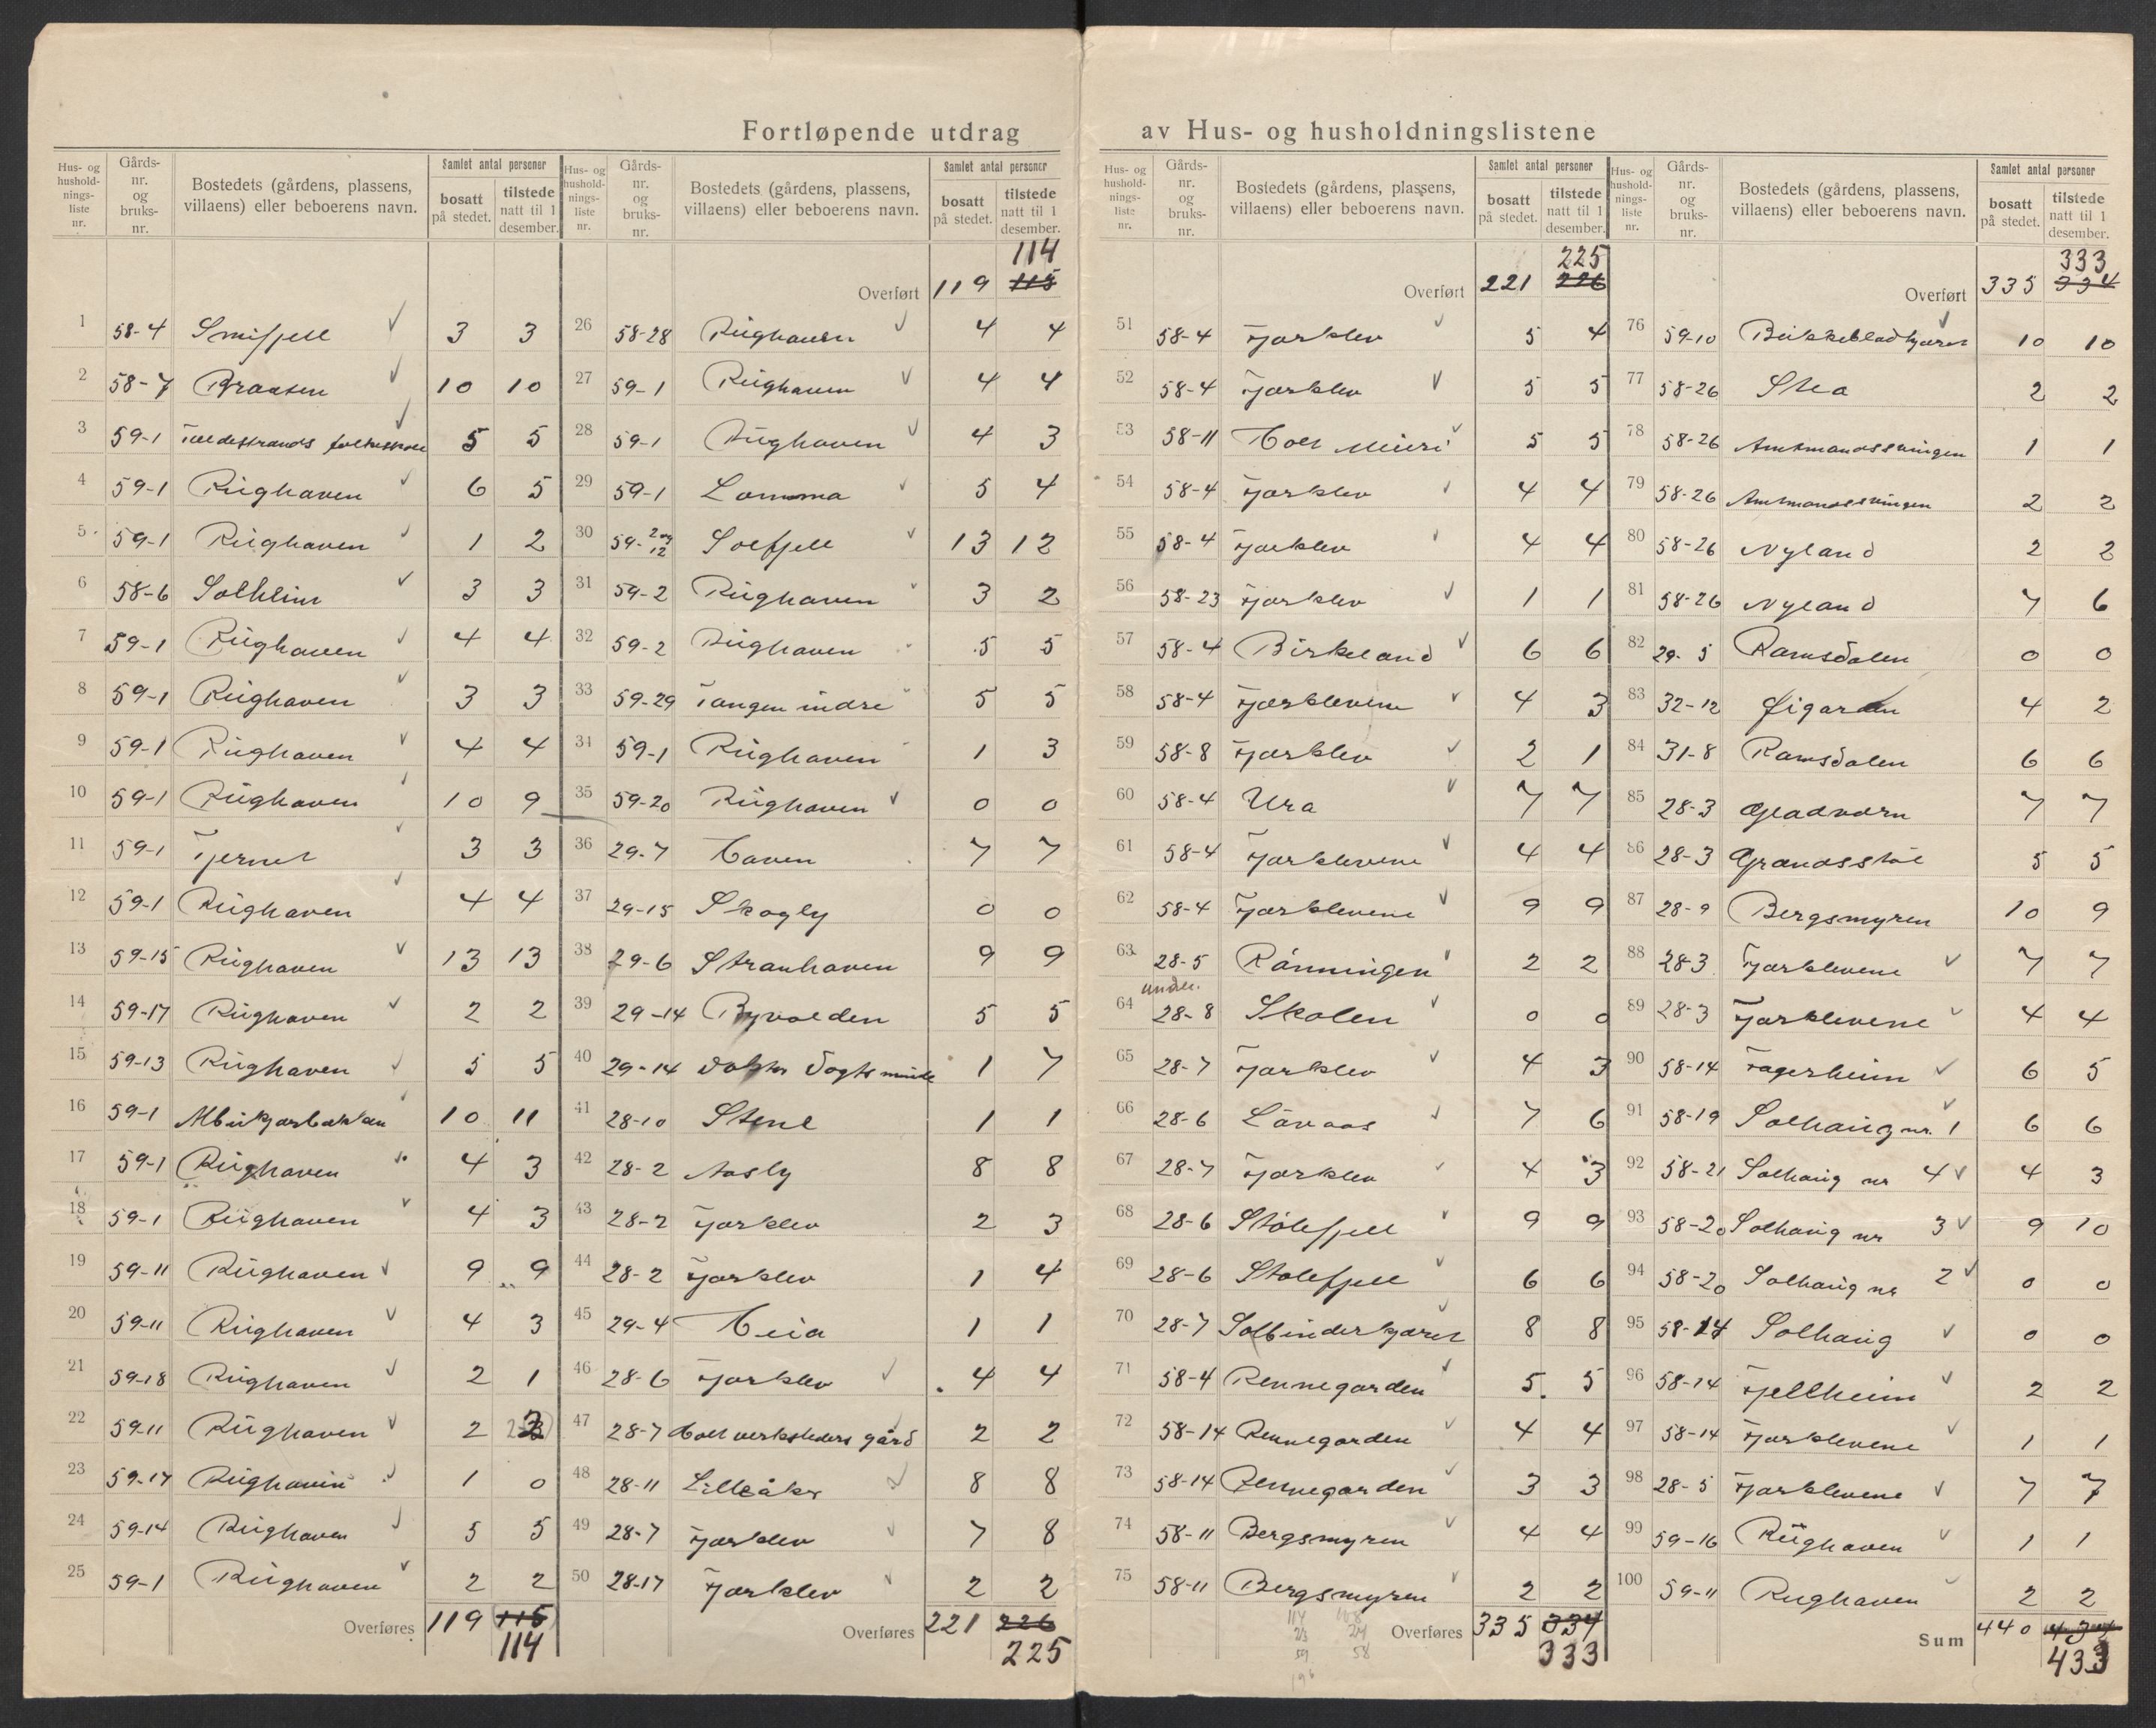 Fortløpende utdrag av Hus- og husholdningslistene
Hus- og husholdnings-liste nr. | Gårds-nr. og bruks-nr. | Bostedets (gårdens, plassens, villaens) eller beboerens navn. | Samlet antal personer | bosatt på stedet. | tilstede natt til 1 desember.
1 58-4 Smifjell 3 3
2 58-7 Braaten 10 10
3 59-1 folkeskole 5 5
4 59-1 Rüghaven 6 5
5 59-1 Rüghaven 1 2
6 58-6 Solheim 3 3
7 59-1 Rüghaven 4 4
8 59-1 Rüghaven 3 3
9 59-1 Rüghaven 4 4
10 59-1 Rüghaven 10 9
11 59-1 Tjernet 3 3
12 59-1 Rüghaven 4 4
13 59-15 Rüghaven 13 13
14 59-17 Rüghaven 2 2
15 59-13 Rüghaven 5 5
16 59-1 10 11
17 59-1 Rüghaven 4 3
18 59-1 Rüghaven 4 3
19 59-11 Rüghaven 9 9
20 59-11 Rüghaven 4 3
21 59-18 Rüghaven 2 1
22 59-11 Rüghaven 2
23 59-17 Rüghaven 1 0
24 59-14 Rüghaven 5 5
25 59-1 Rüghaven 2 2
Overføres 119 115
114
Hus- og husholdnings-liste nr. | Gårds-nr. og bruks-nr. | Bostedets (gårdens, plassens, villaens) eller beboerens navn. | Samlet antal personer | bosatt på stedet. | tilstede natt til 1 desember.
114
Overført 119 115
26 58-28 Rüghaven 4 4
27 59-1 Rüghaven 4 4
28 59-1 Rüghaven 4 3
29 59-1 Lomma 5 4
30 59-2 og 12 Solfjell 13 12
31 59-2 Rüghaven 3 2
32 59-2 Rüghaven 5 5
33 59-29 Tangen indre 5 5
34 59-1 Rüghaven 1 3
35 59-20 Rüghaven 0 0
36 29-7 Haven 7 7
37 29-15 Skogly 0 0
38 29-6 Stranhaven 9 9
39 29-14 Byvolden 5 5
40 29-14 Doktor Vogts minde 1 7
41 28-10 Stene 1 1
42 28-2 Aasly 8 8
43 28-2 Fjærklev 2 3
44 28-2 Fjærklev 1 4
45 29-4 Heia 1 1
46 28-6 Fjærklev 4 4
47 28-7 Holt verksteders gård 2 2
48 28-11 Lilleåker 8 8
49 28-7 Fjærklev 7 8
50 28-17 Fjærklev 2 2
Overføres 221 226
225
Hus- og husholdnings-liste nr. | Gårds-nr. og bruks-nr. | Bostedets (gårdens, plassens, villaens) eller beboerens navn. | Samlet antal personer | bosatt på stedet. | tilstede natt til 1 desember.
225
Overført 221 226
51 58-4 Fjærklev 5 4
52 58-4 Fjærklev 5 5
53 58-11 Holt Meieri 5 5
54 58-4 Fjærklev 4 4
55 58-4 Fjærklev 4 4
56 58-23 Fjærklev 1 1
57 58-4 Birkeland 6 6
58 58-4 Fjærklevene 4 3
59 58-8 Fjærklev 2 1
60 58-4 Ura 7 7
61 58-4 Fjærklevene 4 4
62 58-4 Fjærklevene 9 9
63 28-5 Rønningen 2 2
under.
64 28-8 Skolen 0 0
65 28-7 Fjærklev 4 3
66 28-6 Løvaas 7 6
67 28-7 Fjærklev 4 3
68 28-6 Stølefjell 9 9
69 28-6 Stølefjell 6 6
70 28-7 Solbinderkjæret 8 8
71 58-4 Rennegarden 5 5
72 58-14 Rennegarden 4 4
73 58-14 Rennegarden 3 3
74 58-11 Bergsmyren 4 4
75 58-11 Bergsmyren 2 2
Overføres 335 334
333
Hus- og husholdnings-liste nr. | Gårds-nr. og bruks-nr. | Bostedets (gårdens, plassens, villaens) eller beboerens navn. | Samlet antal personer | bosatt på stedet. | tilstede natt til 1 desember.
333
Overført 335 334
76 59-10 Bukkebladkjæret 10 10
77 58-26 Stea 2 2
78 58-26 Amtmandssvingen 1 1
79 58-26 Amtmandssvingen 2 2
80 58-26 Nyland 2 2
81 58-26 Nyland 7 6
82 29-5 Ramsdalen 0 0
83 32-12 Øigarden 4 2
84 31-8 Ramsdalen 6 6
85 28-3 Gladvorn 7 7
86 28-3 Grandsstøl 5 5
87 28-9 Bergsmyren 10 9
88 28-3 Fjærklevene 7 7
89 28-3 Fjærklevene 4 4
90 58-14 Fagerheim 6 5
91 58-19 Solhaüg nr. 1 6 6
92 58-21 Solhaüg nr 4 4 3
93 58-20 Solhaüg nr 3 9 10
94 58-20 Solhaüg nr 2 0 0
95 58-14 Solhaüg 0 0
96 58-14 Fjellheim 2 2
97 58-14 Fjærklevene 1 1
98 28-5 Fjærklevene 7 7
99 59-16 Rüghaven 1 1
100 59-11 Rüghaven 2 2
Sum 440 434
433